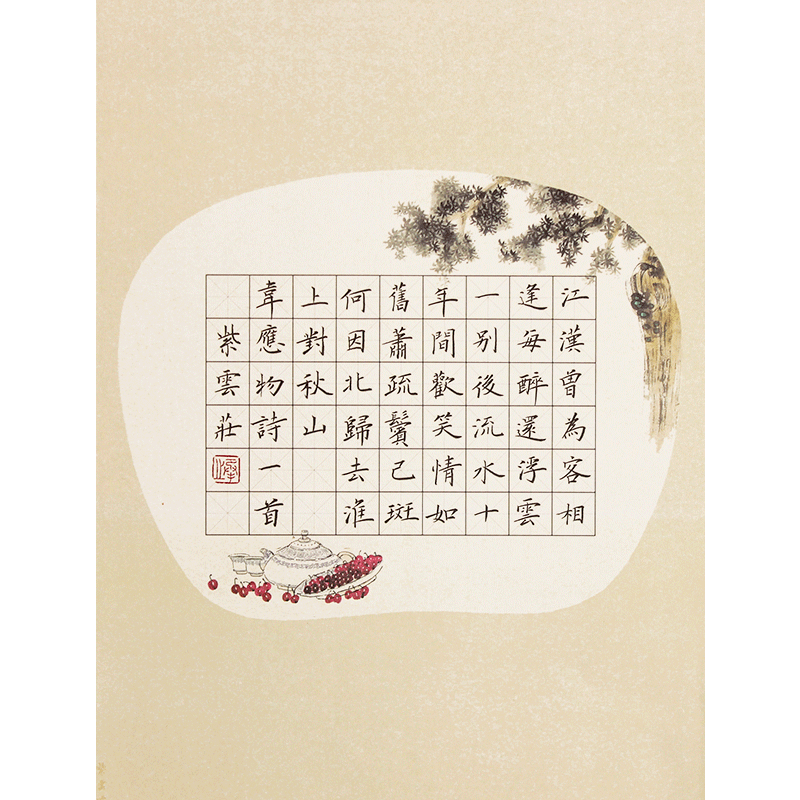 江漢曾為客相
逢每醉還浮雲
一別後流水十
年間歡笑情如
舊蕭疏鬢已斑
何因北歸去淮
上對秋山
韋應物詩一首
紫雲莊